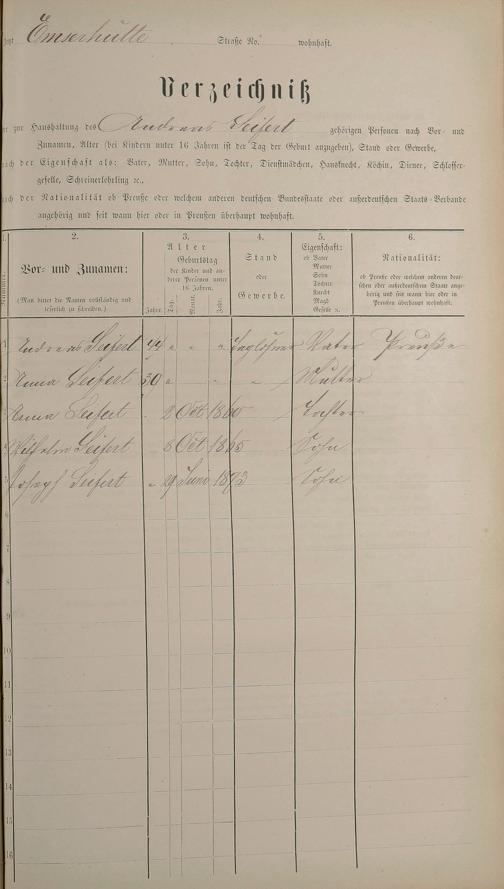 Emserhütte Straße No. wohnhaft.
Verzeichniß
zur Haushaltung des Andreas Seifert gehörigen Personen nach Vor- und
Zunamen, Alter (bei Kindern unter 16 Jahren ist der Tag der Geburt anzugeben), Stand oder Gewerbe,
nach der Eigenschaft als: Vater, Mutter, Sohn, Tochter, Dienstmädchen, Hausknecht, Köchin, Diener, Schlosser-
geselle, Schreinerlehrling ꝛc.,
nach der Nationalität ob Preuße oder welchem anderen deutschen Bundesstaate oder außerdeutschen Staats-Verbande
angehörig und seit wann hier oder in Preußen überhaupt wohnhaft.
1. 2. 3. 4. 5. 6.
Nummer.
Vor- und Zunamen:
(Man bittet die Namen vollständig und
leserlich zu schreiben.)
Alter
Geburtstag
der Kinder und an-
derer Personen unter
16 Jahren.
Jahre. Tag. Monat. Jahr.
Stand
oder
Gewerbe.
Eigenschaft:
ob Vater
Mutter
Sohn
Tochter
Knecht
Magd
Geselle ꝛc.
Nationalität:
ob Preuße oder welchem anderen deut-
schen oder außerdeutschen Staate ange-
hörig und seit wann hier oder in
Preußen überhaupt wohnhaft.
1 Andreas Seifert 44 " " " Taglöhner Vater Preuße
2 Anna Seifert 50 " - - Mutter
3 Anna Seifert . 2 Oct 1860 Tochter
4 Wilhelm Seifert 8 Oct 1865 Sohn
5 Joseph Seifert " 29 Juni 1873 Sohn
6
7
8
9
10
11
12
13
14
15
16